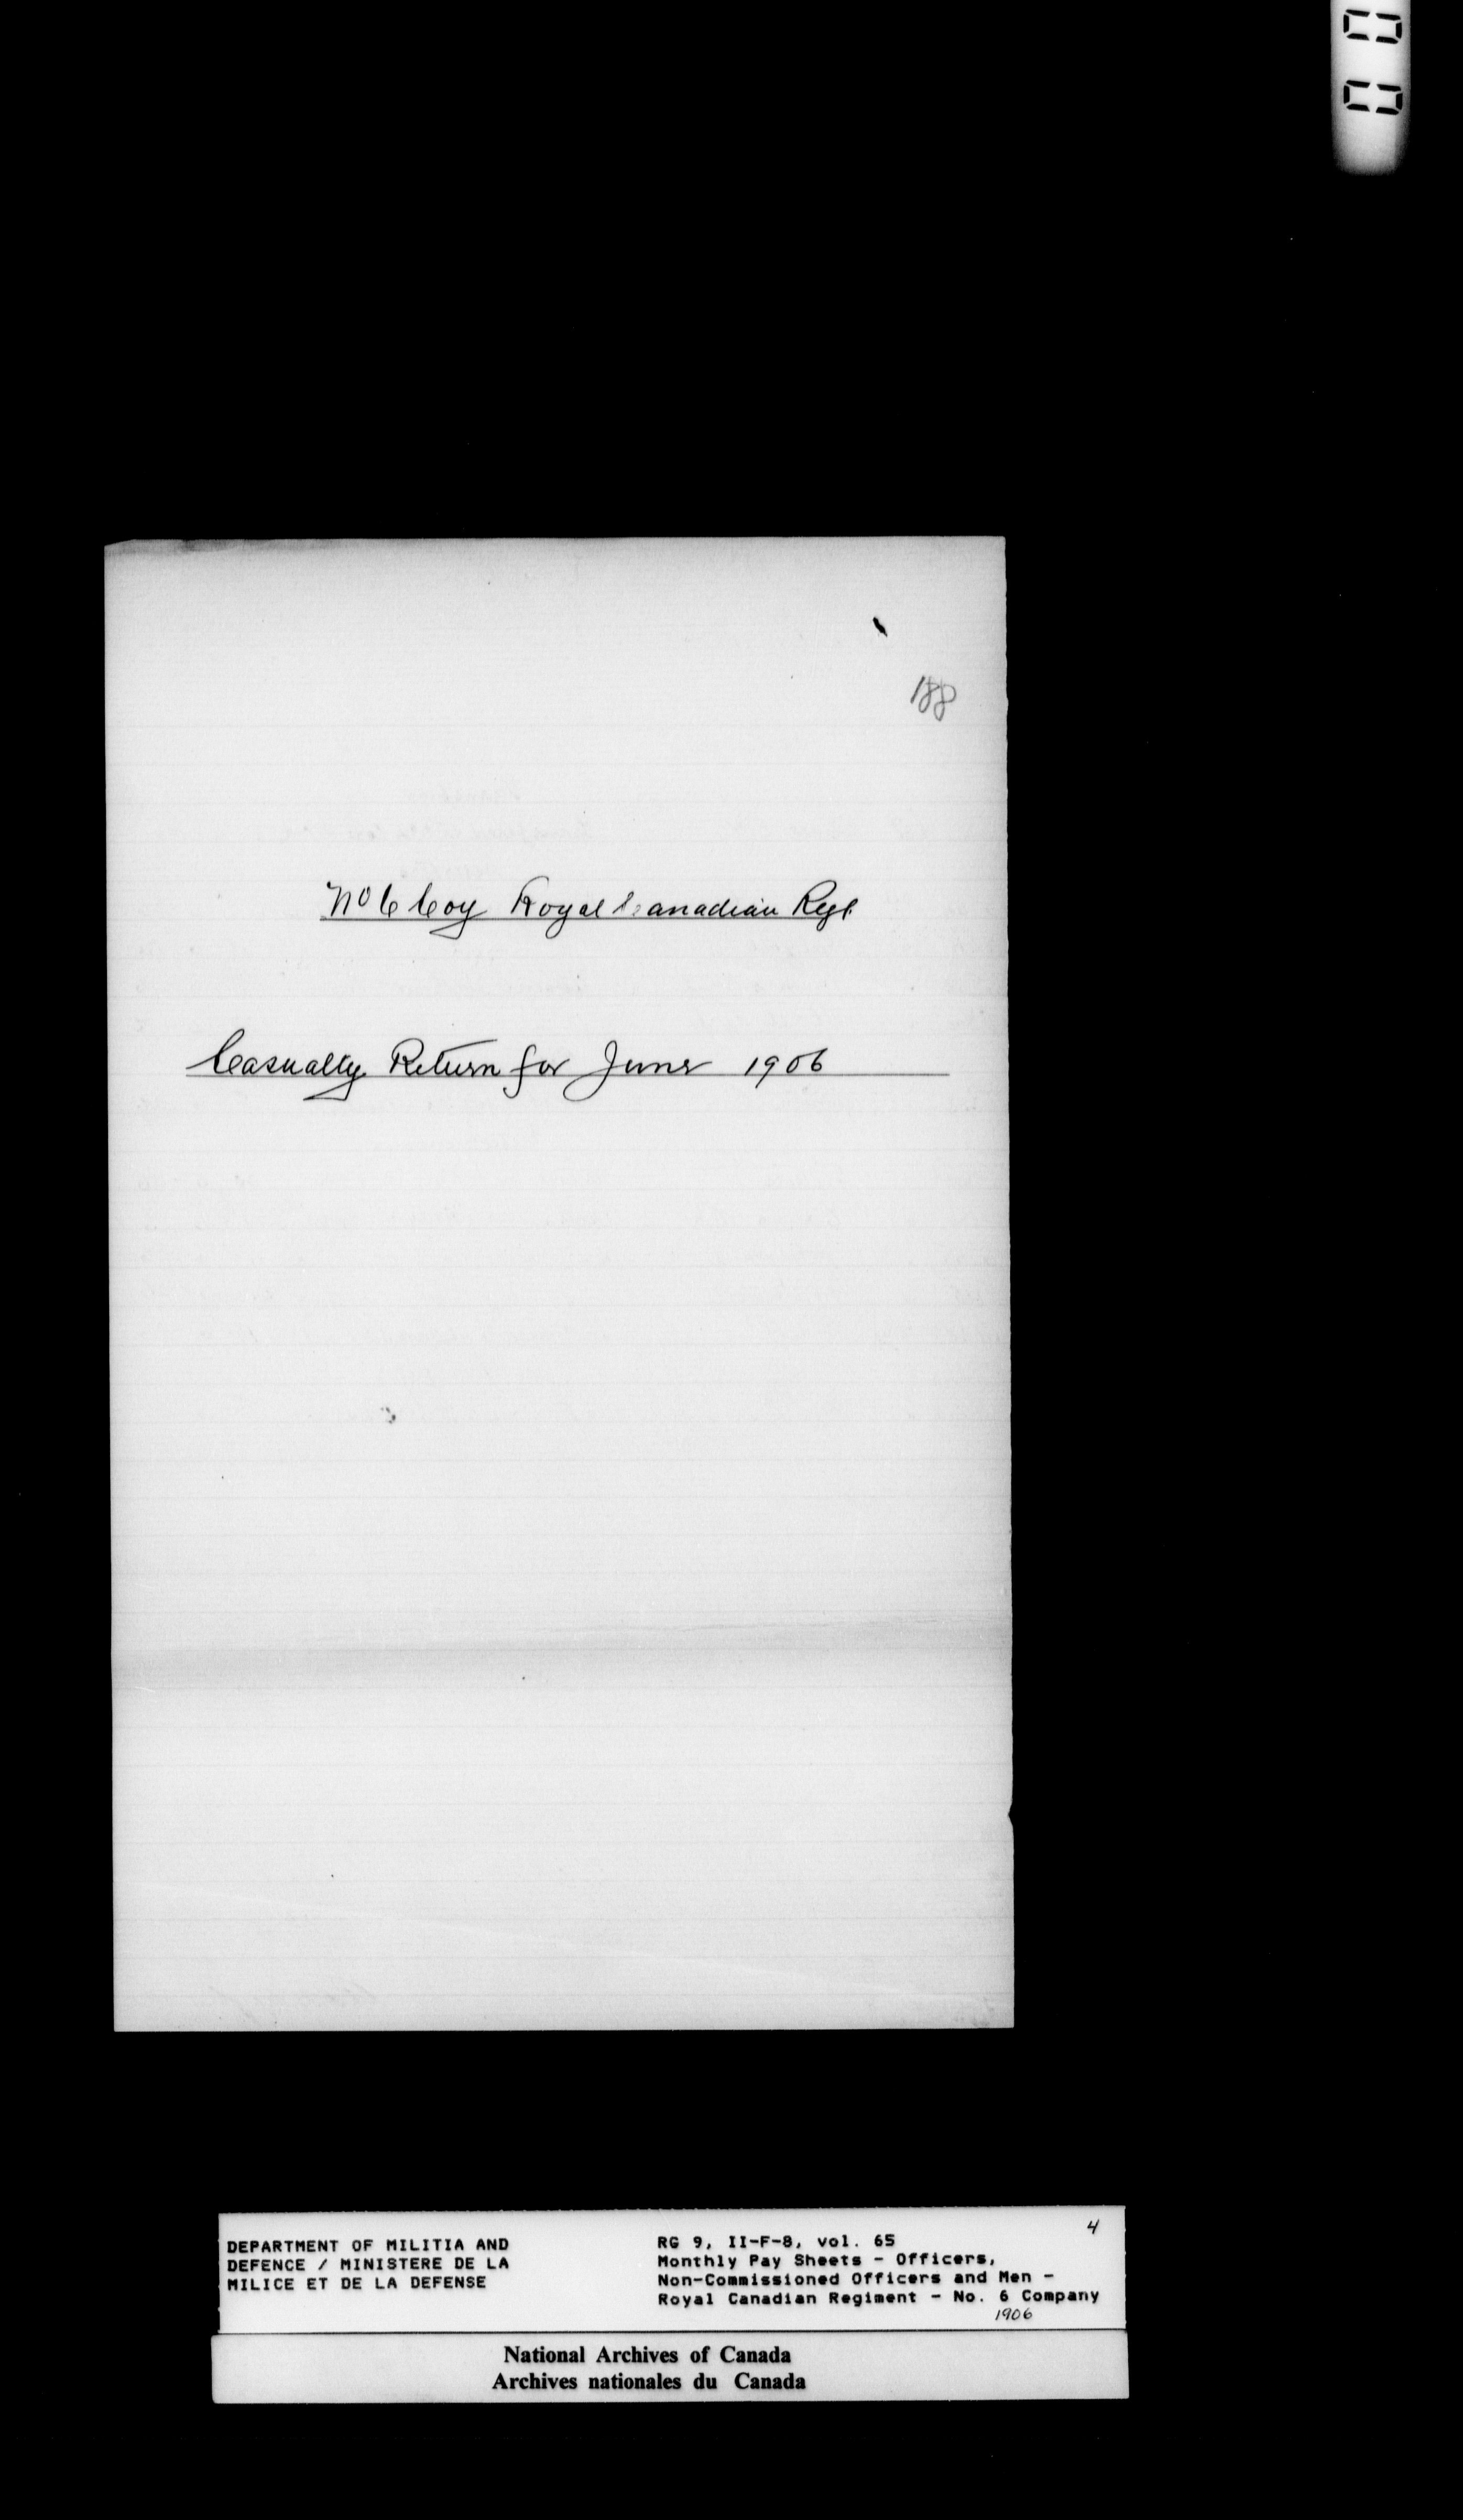 188
No 6 Coy Royal Canadian Regt
Casualty Return for June 1906
4
DEPARTMENT OF MILITIA AND
DEFENCE / MINISTERE DE LA
MILICE ET DE LA DEFENSE
RG 9, II-F-8, vol. 65
Monthly Pay Sheets - Officers,
Non-Commissioned Officers and Men -
Royal Canadian Regiment - No. 6 Company
1906
National Archives of Canada
Archives nationales du Canada